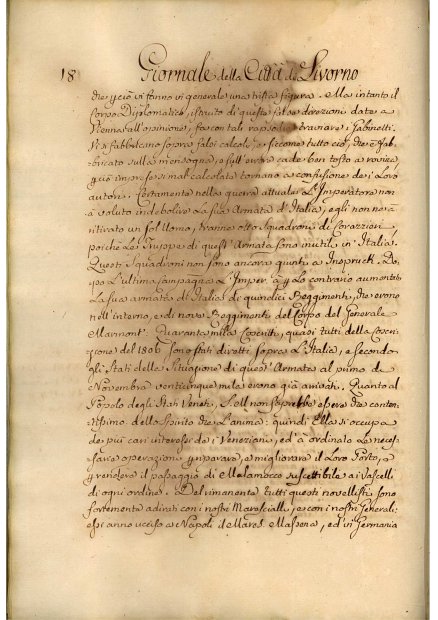 18 Giornale della Città di Livorno
che perciò vi fanno in generale una trista figura. Ma intanto il
Corpo Diplomatico, istruito di queste false direzioni date a
Vienna all'opinione, fa con tali rapsodie traviare i Gabinetti.
Vi si fabbricano sopra falsi calcoli, e siccome tutto ciò, che è fab-
bricato sulla mensogna, e sull'errore cade ben tosto a rovina,
così imprese si mal calcolate tornano a confusione de i Loro
autori. Certamente nella guerra attuale L'Imperatore non
à voluto indebolire La sua Armata d'Italia; egli non ne à
ritirato un sol Uomo, tranne otto Squadroni di Corazzieri,
poiché Le Truppe di quest'Armata sono inutili in Italia.
Questi Squadroni non sono ancora giunti a Inspruck. Do-
po L'ultima Campagna L'Imper. à per Lo contrario aumentata
La sua armata d'Italia di quindici Reggimenti, che erono
nell'interno, e di nove Reggimenti del Corpo del Generale
Marmont. Quaranta mila Coscritti, quasi tutti della Coscri-
zione del 1806 sono stati diretti sopra L'Italia, e secondo
gli Stati della Situazione di quest'Armata al primo di
Novembre venticinque mila erono già arrivati. Quanto al
Popolo degli Stati Veneti, S'Ell non saprebbe essere che conten-
tissimo dello Spirito che L'anima: quindi Ella si occupa
de più cari interessi de i Veneziani, ed à ordinato Le neces-
sarie operazioni per riparare, e migliorare il Loro Porto, e
per rendere il passaggio di Malamocco suscettibile a i Vascelli
di ogni ordine. Del rimanente tutti questi novellisti sono
fortemente adirati con i nostri Marescialli, e con i nostri Generali:
essi anno ucciso a Napoli il Maresc. Massena, ed in Germania